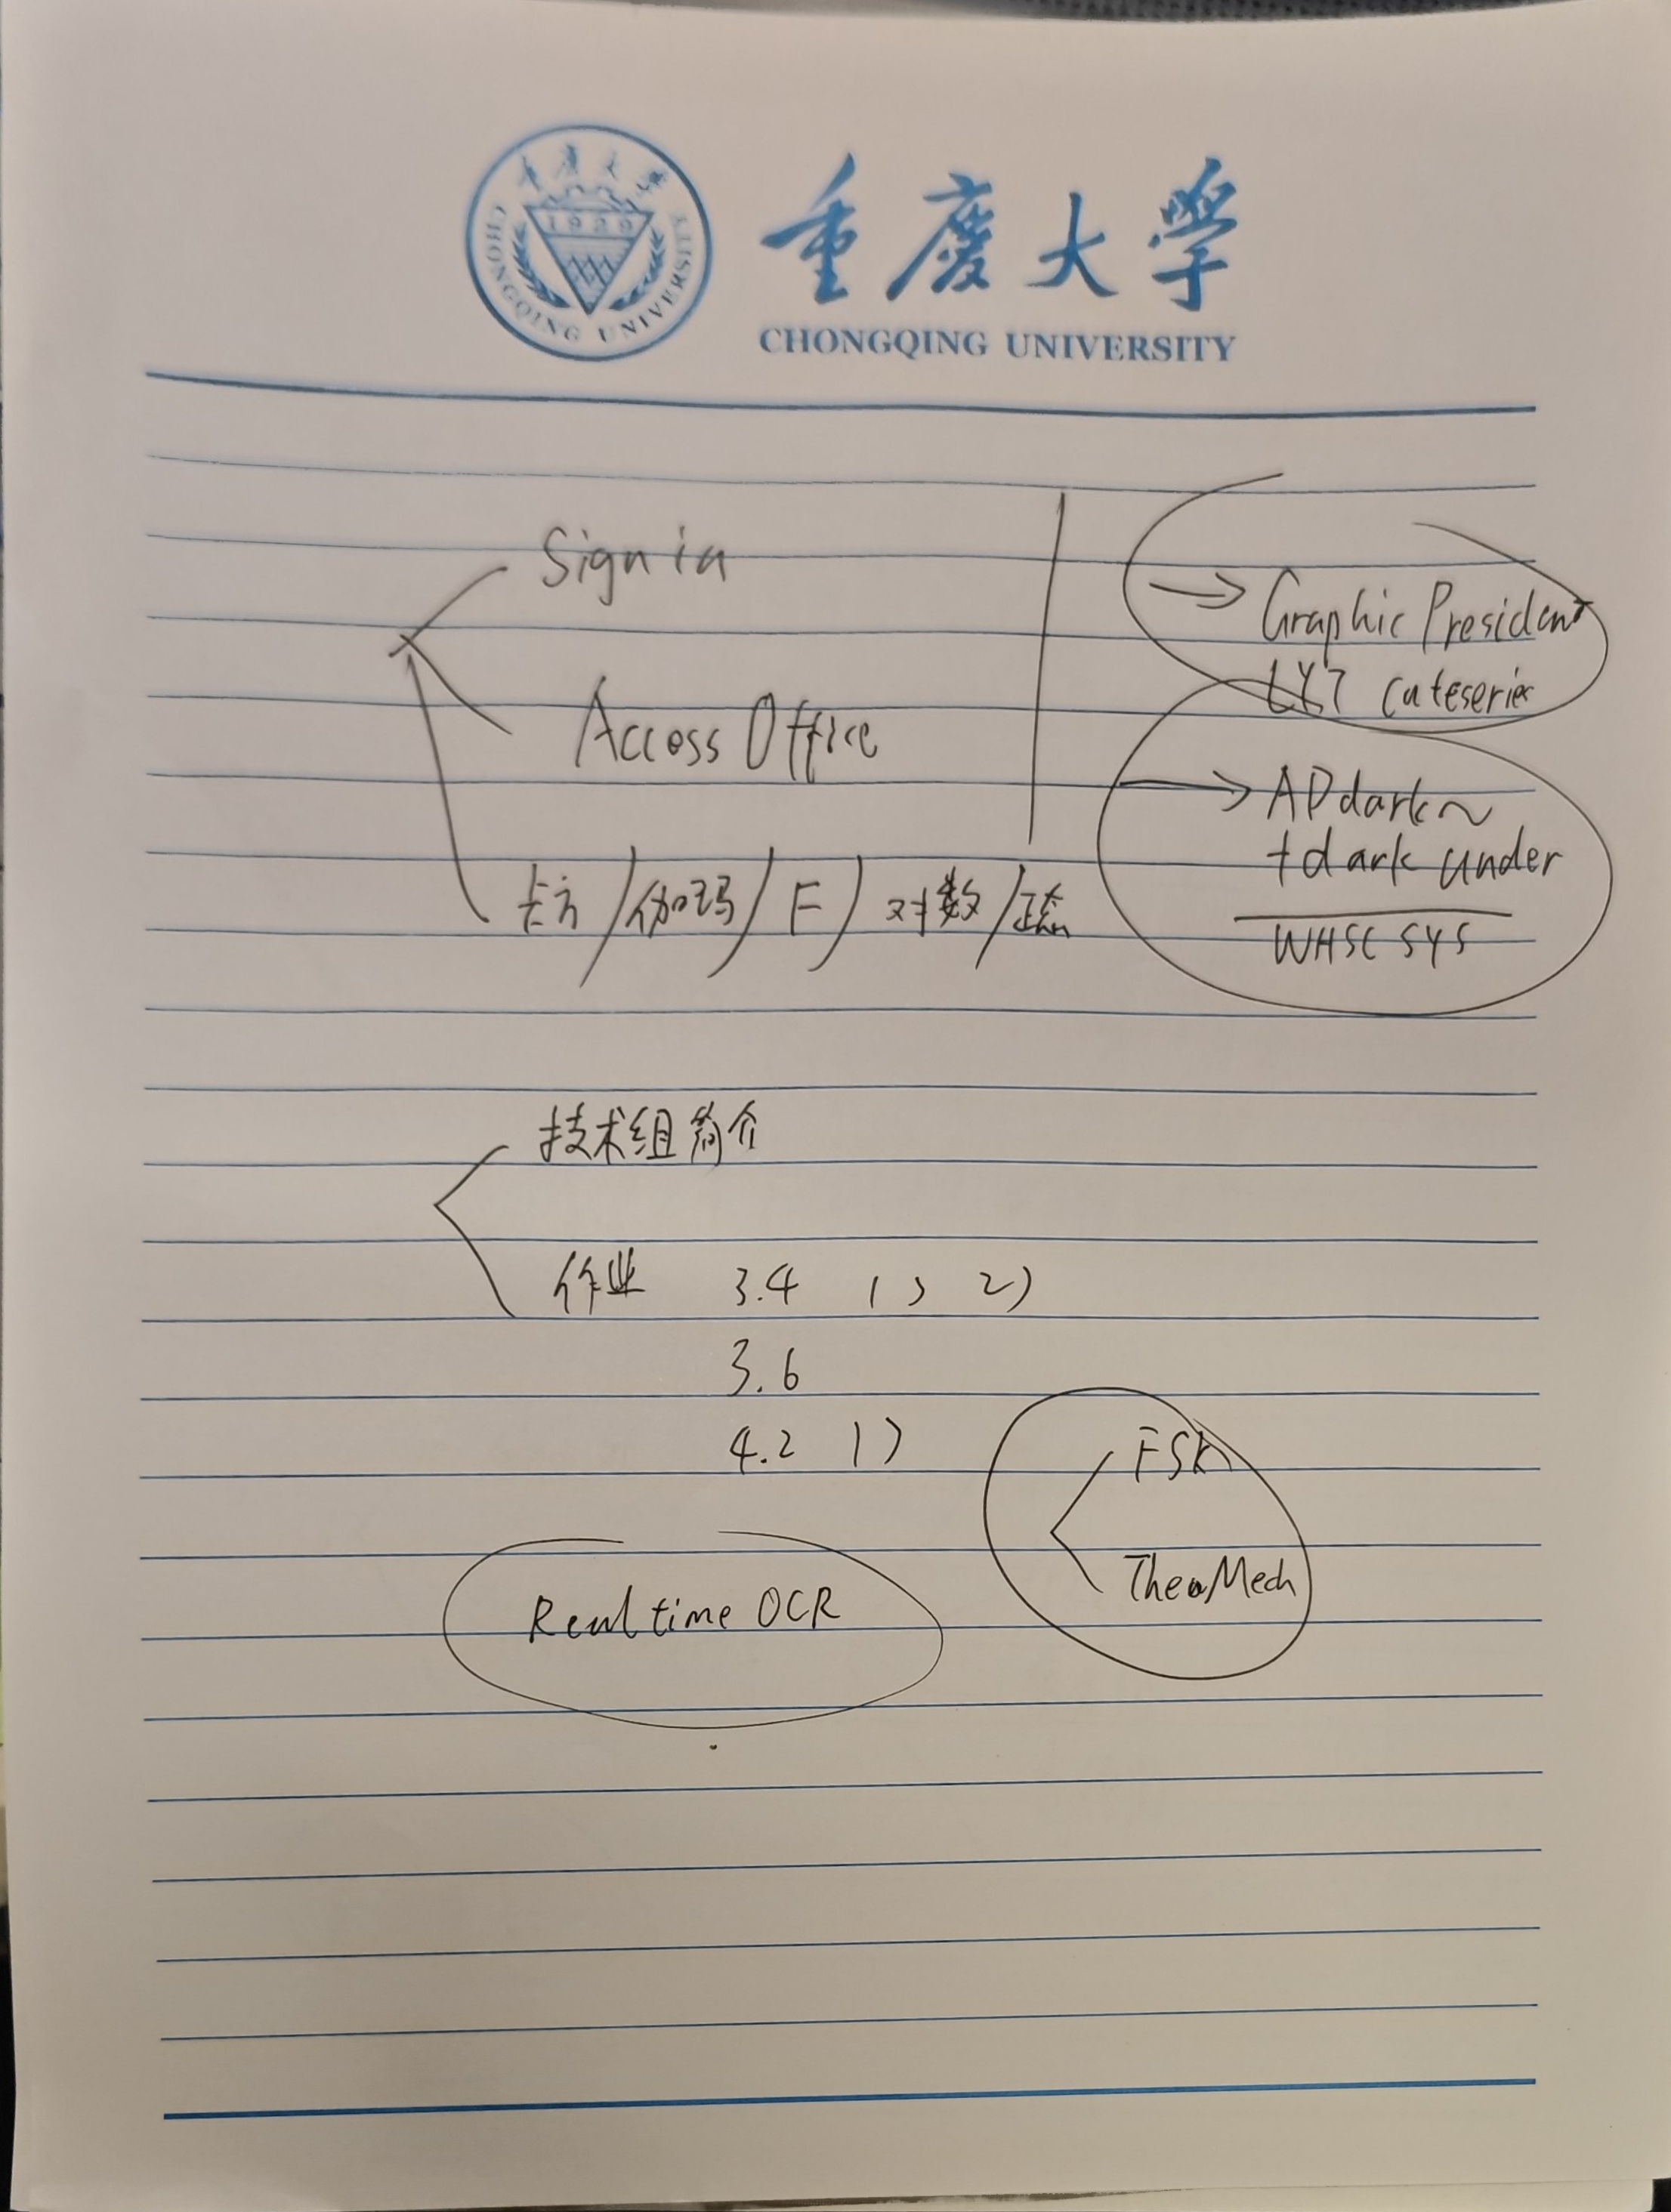 重庆大学
1929
CHONGQING UNIVERSITY
重慶大学
CHONGQING UNIVERSITY
Sign in
Access Office
卡方/伽玛/F/对数/正态
→ Graphic President
LYT cateseries
→ AD dark~
+dark under
WHSC SYS
技术组简介
作业 3.4 1) 2)
3.6
4.2 1)
FSK
TheoMech
Real time OCR